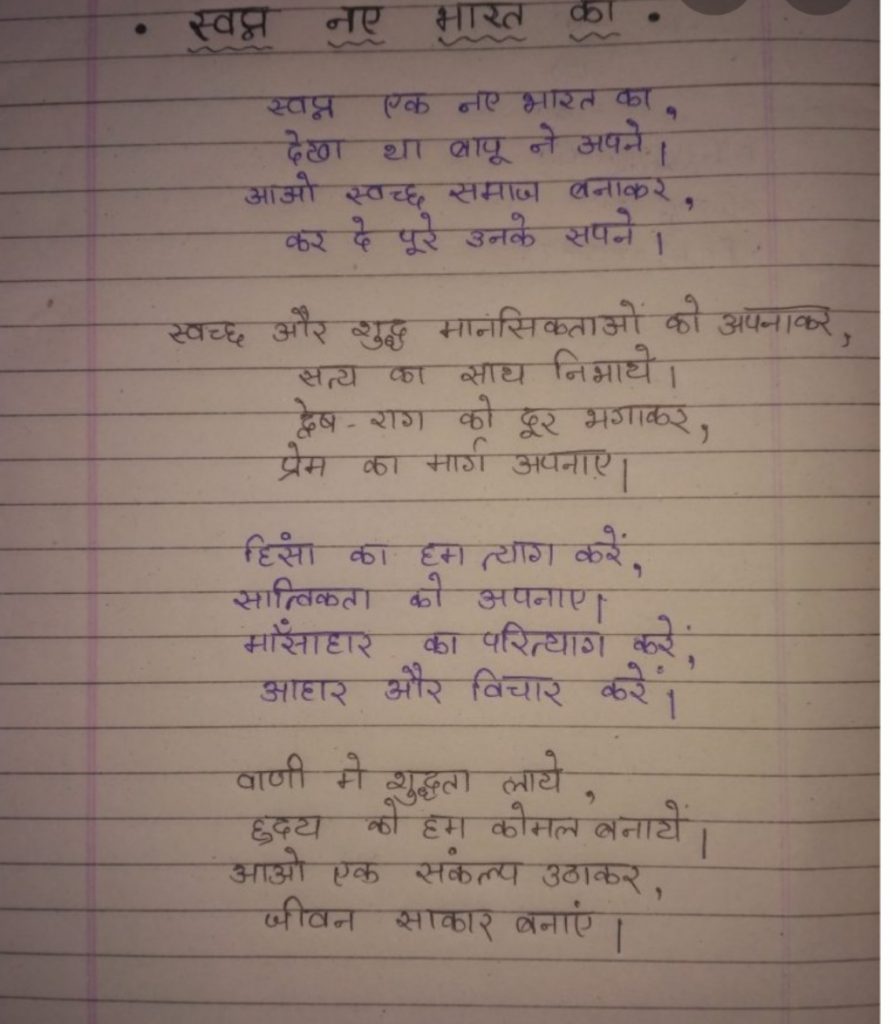 • स्वप्न नए भारत का •
स्वप्न एक नए भारत का,
देखा था बापू ने अपने।
आओ स्वच्छ समाज बनाकर,
कर दे पूरे उनके सपने।
स्वच्छ और शुद्ध मानसिकताओं को अपनाकर,
सत्य का साथ निभाये।
द्वेष-राग को दूर भगाकर,
प्रेम का मार्ग अपनाए।
हिंसा का हम त्याग करें,
सात्विकता को अपनाए।
माँसाहार का परित्याग करें,
आहार और विचार करें।
वाणी मे शुद्धता लाये,
हृदय को हम कोमल बनायें।
आओ एक संकल्प उठाकर,
जीवन साकार बनाएं।